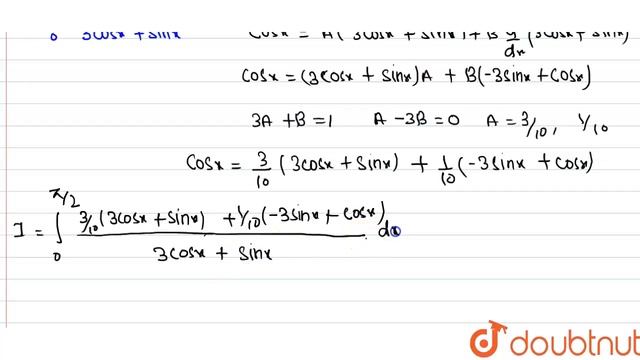 0 3cosx + sinx cosx = A(3cosx + sinx) + B d/dx (3cosx + sinx)
cosx = (3cosx + sinx)A + B(-3sinx + cosx)
3A + B = 1 A - 3B = 0 A = 3/10, 1/10
cosx = 3/10 (3cosx + sinx) + 1/10 (-3sinx + cosx)
I = ∫₀^(π/2) (3/10 (3cosx + sinx) + 1/10 (-3sinx + cosx)) / (3cosx + sinx) dx
doubtnut